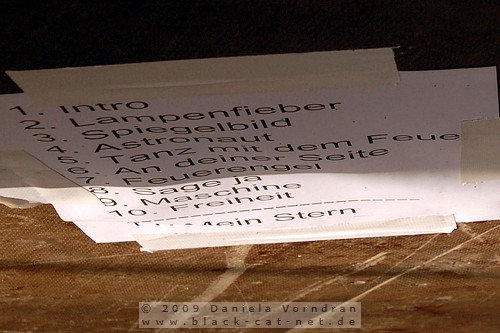 1. Intro
2. Lampenfieber
3. Spiegelbild
4. Astronaut
5. Tanz mit dem Feue
6. An deiner Seite
7. Feuerengel
8. Sage ja
9. Maschine
10. Freiheit
Mein Stern
© 2009 Daniela Vorndran
www.black-cat-net.de